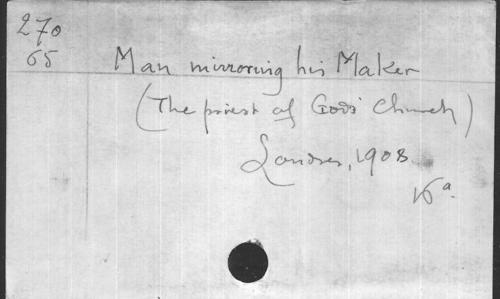 270
65
Man mirroring his Maker
(The priest of God's Church)
Londres, 1908.
16a.